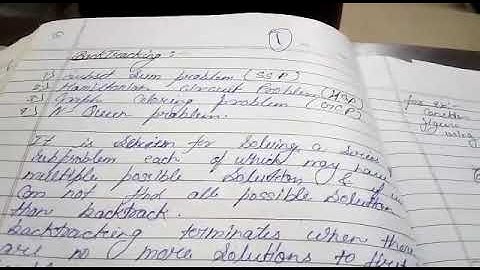 1
BackTracking :-
1) subset Sum problem (SSP)
2) Hamiltonian circuit Problem (HCP)
3) Graph Coloring problem (GCP)
4) N-Queen problem.
It is for Solving a series
Subproblem each of which may have
multiple posible solution & if we
can not find all possible solution
than backtrack.
backtracking terminates when there
are no more solutions to first
for ex:-
Consider
figure
using